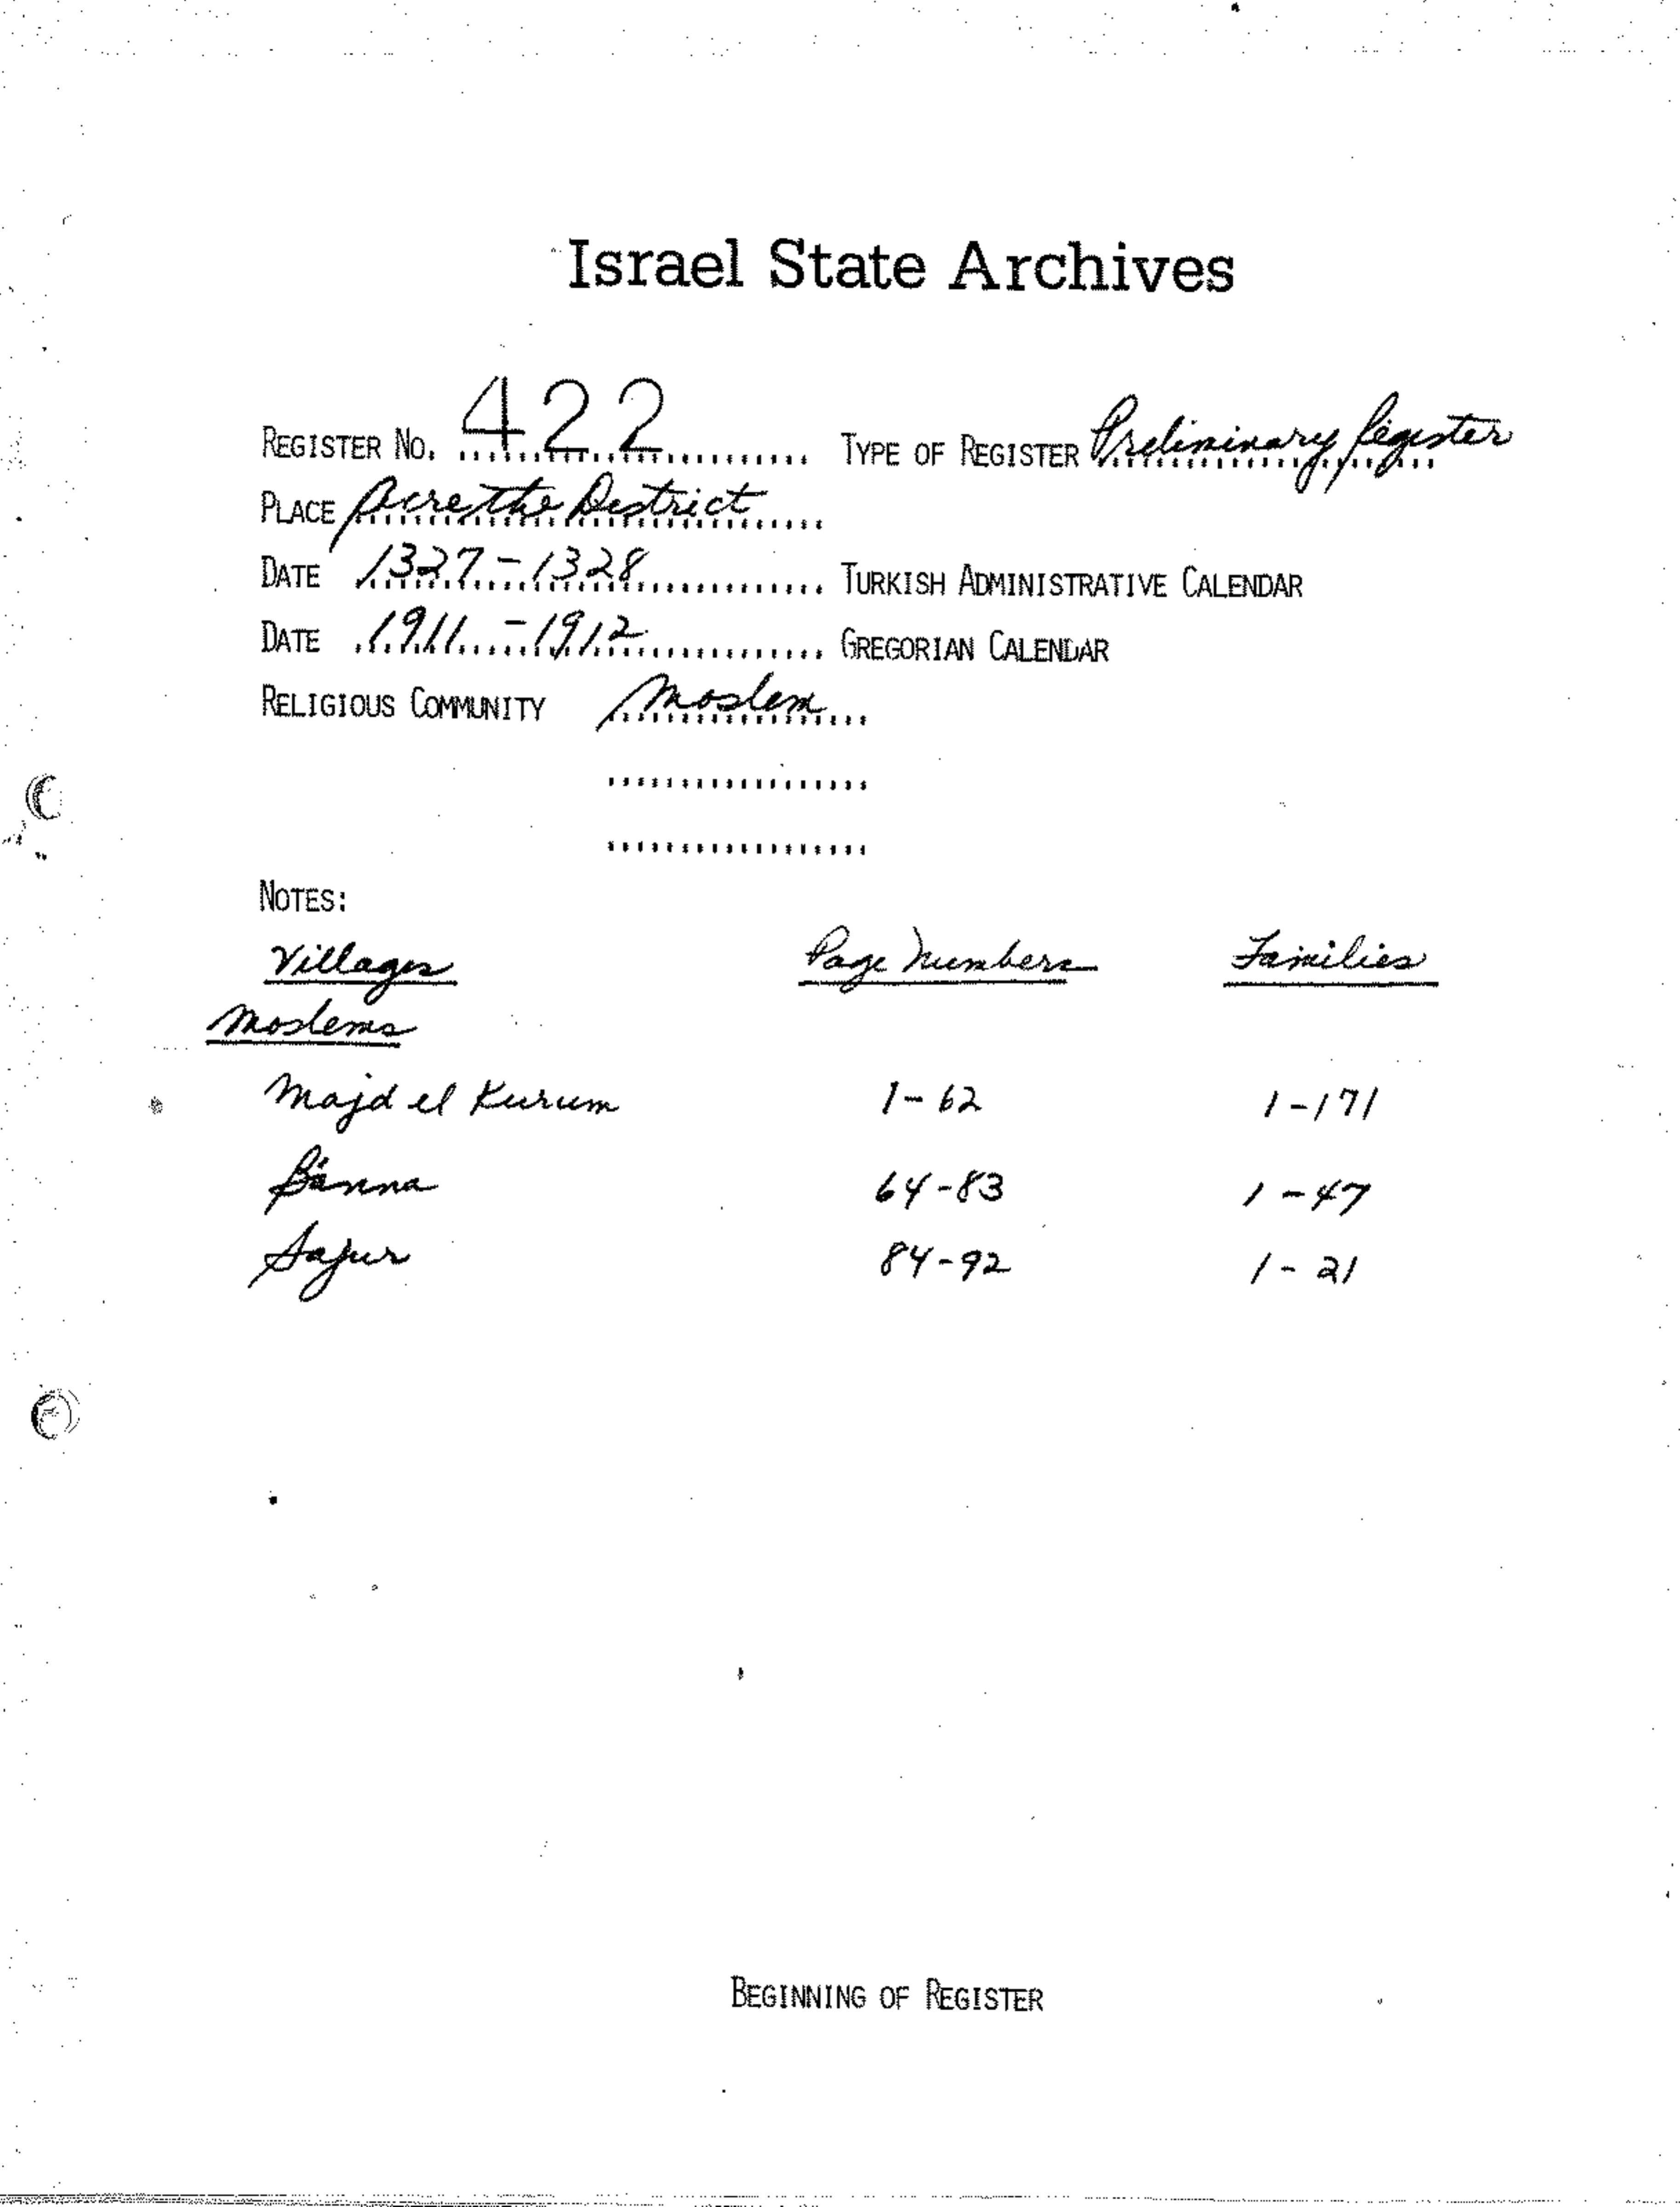 Israel State Archives
REGISTER No. 422 TYPE OF REGISTER Preliminary Register
PLACE Acre the District
DATE 1327-1328 TURKISH ADMINISTRATIVE CALENDAR
DATE 1911-1912 GREGORIAN CALENDAR
RELIGIOUS COMMUNITY Moslem
NOTES:
Villages Page Numbers Families
Moslems
Majd el Kurum 1-62 1-171
Bánna 64-83 1-47
Sajur 84-92 1-21
BEGINNING OF REGISTER